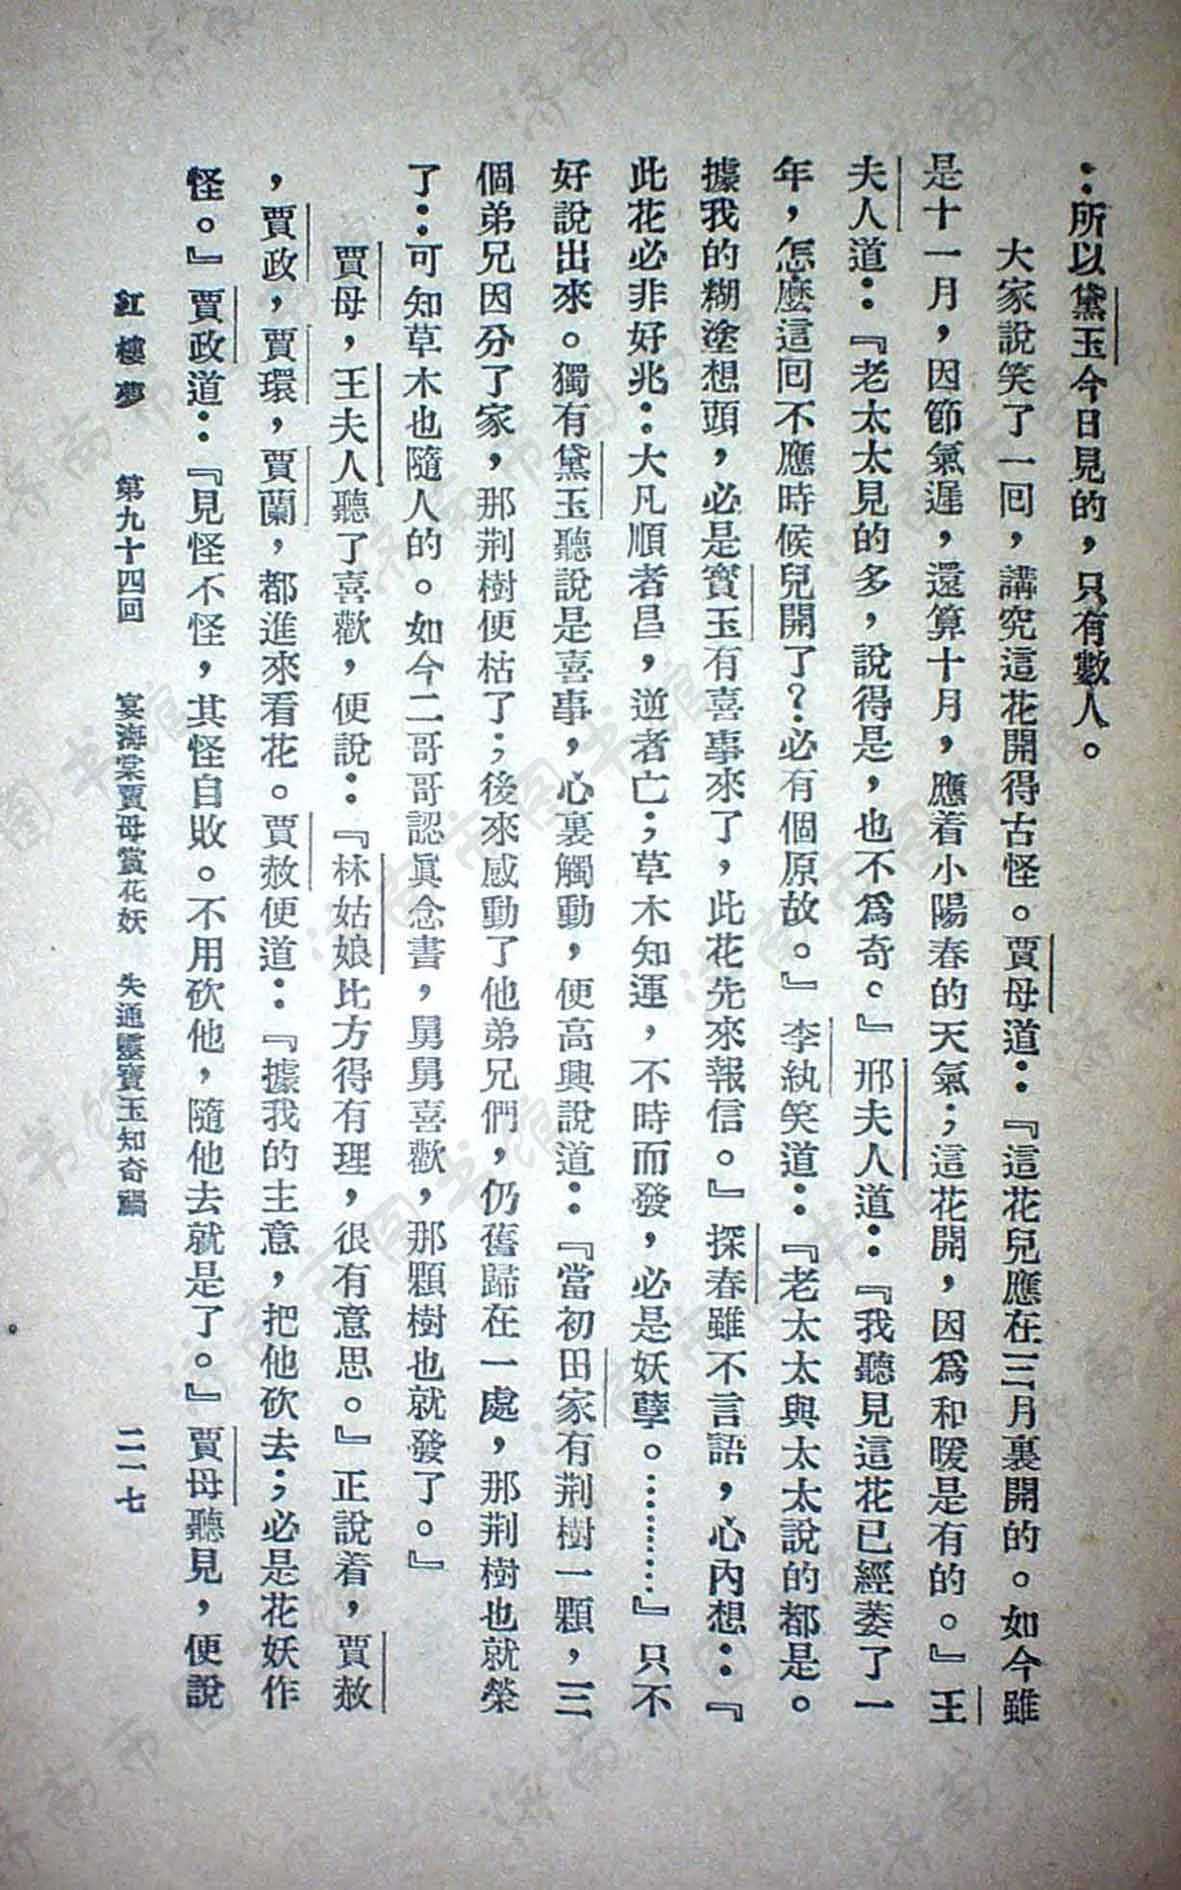 ：所以黛玉今日見的，只有數人。
大家說笑了一回，講究這花開得古怪。賈母道：『這花兒應在三月裏開的。如今雖
是十一月，因節氣遲，還算十月，應着小陽春的天氣；這花開，因爲和暖是有的。』王
夫人道：『老太太見的多，說得是，也不爲奇。』邢夫人道：『我聽見這花已經萎了一
年，怎麼這回不應時候兒開了？必有個原故。』李紈笑道：『老太太與太太說的都是。
據我的糊塗想頭，必是寶玉有喜事來了，此花先來報信。』探春雖不言語，心內想：『
此花必非好兆：大凡順者昌，逆者亡；草木知運，不時而發，必是妖孽。…………』只不
好說出來。獨有黛玉聽說是喜事，心裏觸動，便高興說道：『當初田家有荆樹一顆，三
個弟兄因分了家，那荆樹便枯了；後來感動了他弟兄們，仍舊歸在一處，那荆樹也就榮
了：可知草木也隨人的。如今二哥哥認眞念書，舅舅喜歡，那顆樹也就發了。』
賈母，王夫人聽了喜歡，便說：『林姑娘比方得有理，很有意思。』正說着，賈赦
，賈政，賈環，賈蘭，都進來看花。賈赦便道：『據我的主意，把他砍去；必是花妖作
怪。』賈政道：『見怪不怪，其怪自敗。不用砍他，隨他去就是了。』賈母聽見，便說
紅樓夢 第九十四回 宴海棠賈母賞花妖 失通靈寶玉知奇禍 二一七
濟南市图书馆